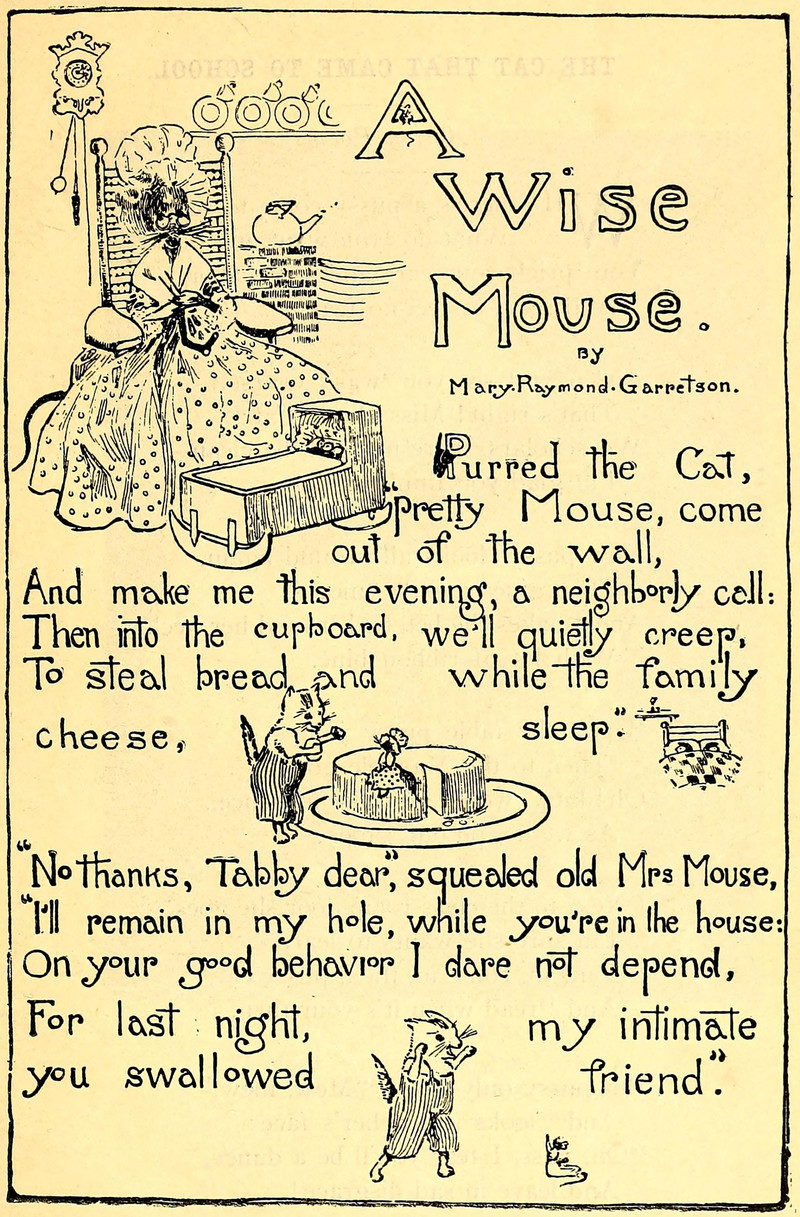 THE CAT THAT CAME TO SCHOOL
A
Wise
Mouse.
BY
Mary·Raymond·Garretson.
Purred the Cat,
"pretty Mouse, come
out of the wall,
And make me this evening, a neighborly call:
Then into the cupboard, we'll quietly creep,
To steal bread and while the family
cheese, sleep".
"No thanks, Tabby dear", squealed old Mrs Mouse,
"I'll remain in my hole, while you're in the house:
On your good behavior I dare not depend,
For last night, my intimate
you swallowed friend".